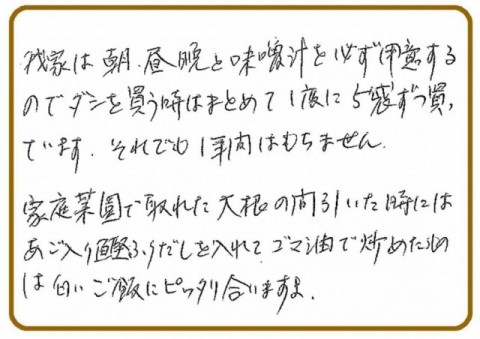 我家は朝、昼、晩と味噌汁を必ず用意する
のでダシを買う時はまとめて1度に5袋ずつ買っ
ています。それでも1年内はもちません。
家庭菜園で取れた大根の間引いた時には
あご入り鰹ふりだしを入れて、ゴマ油で炒めたもの
は白いご飯にピッタリ合いますよ。